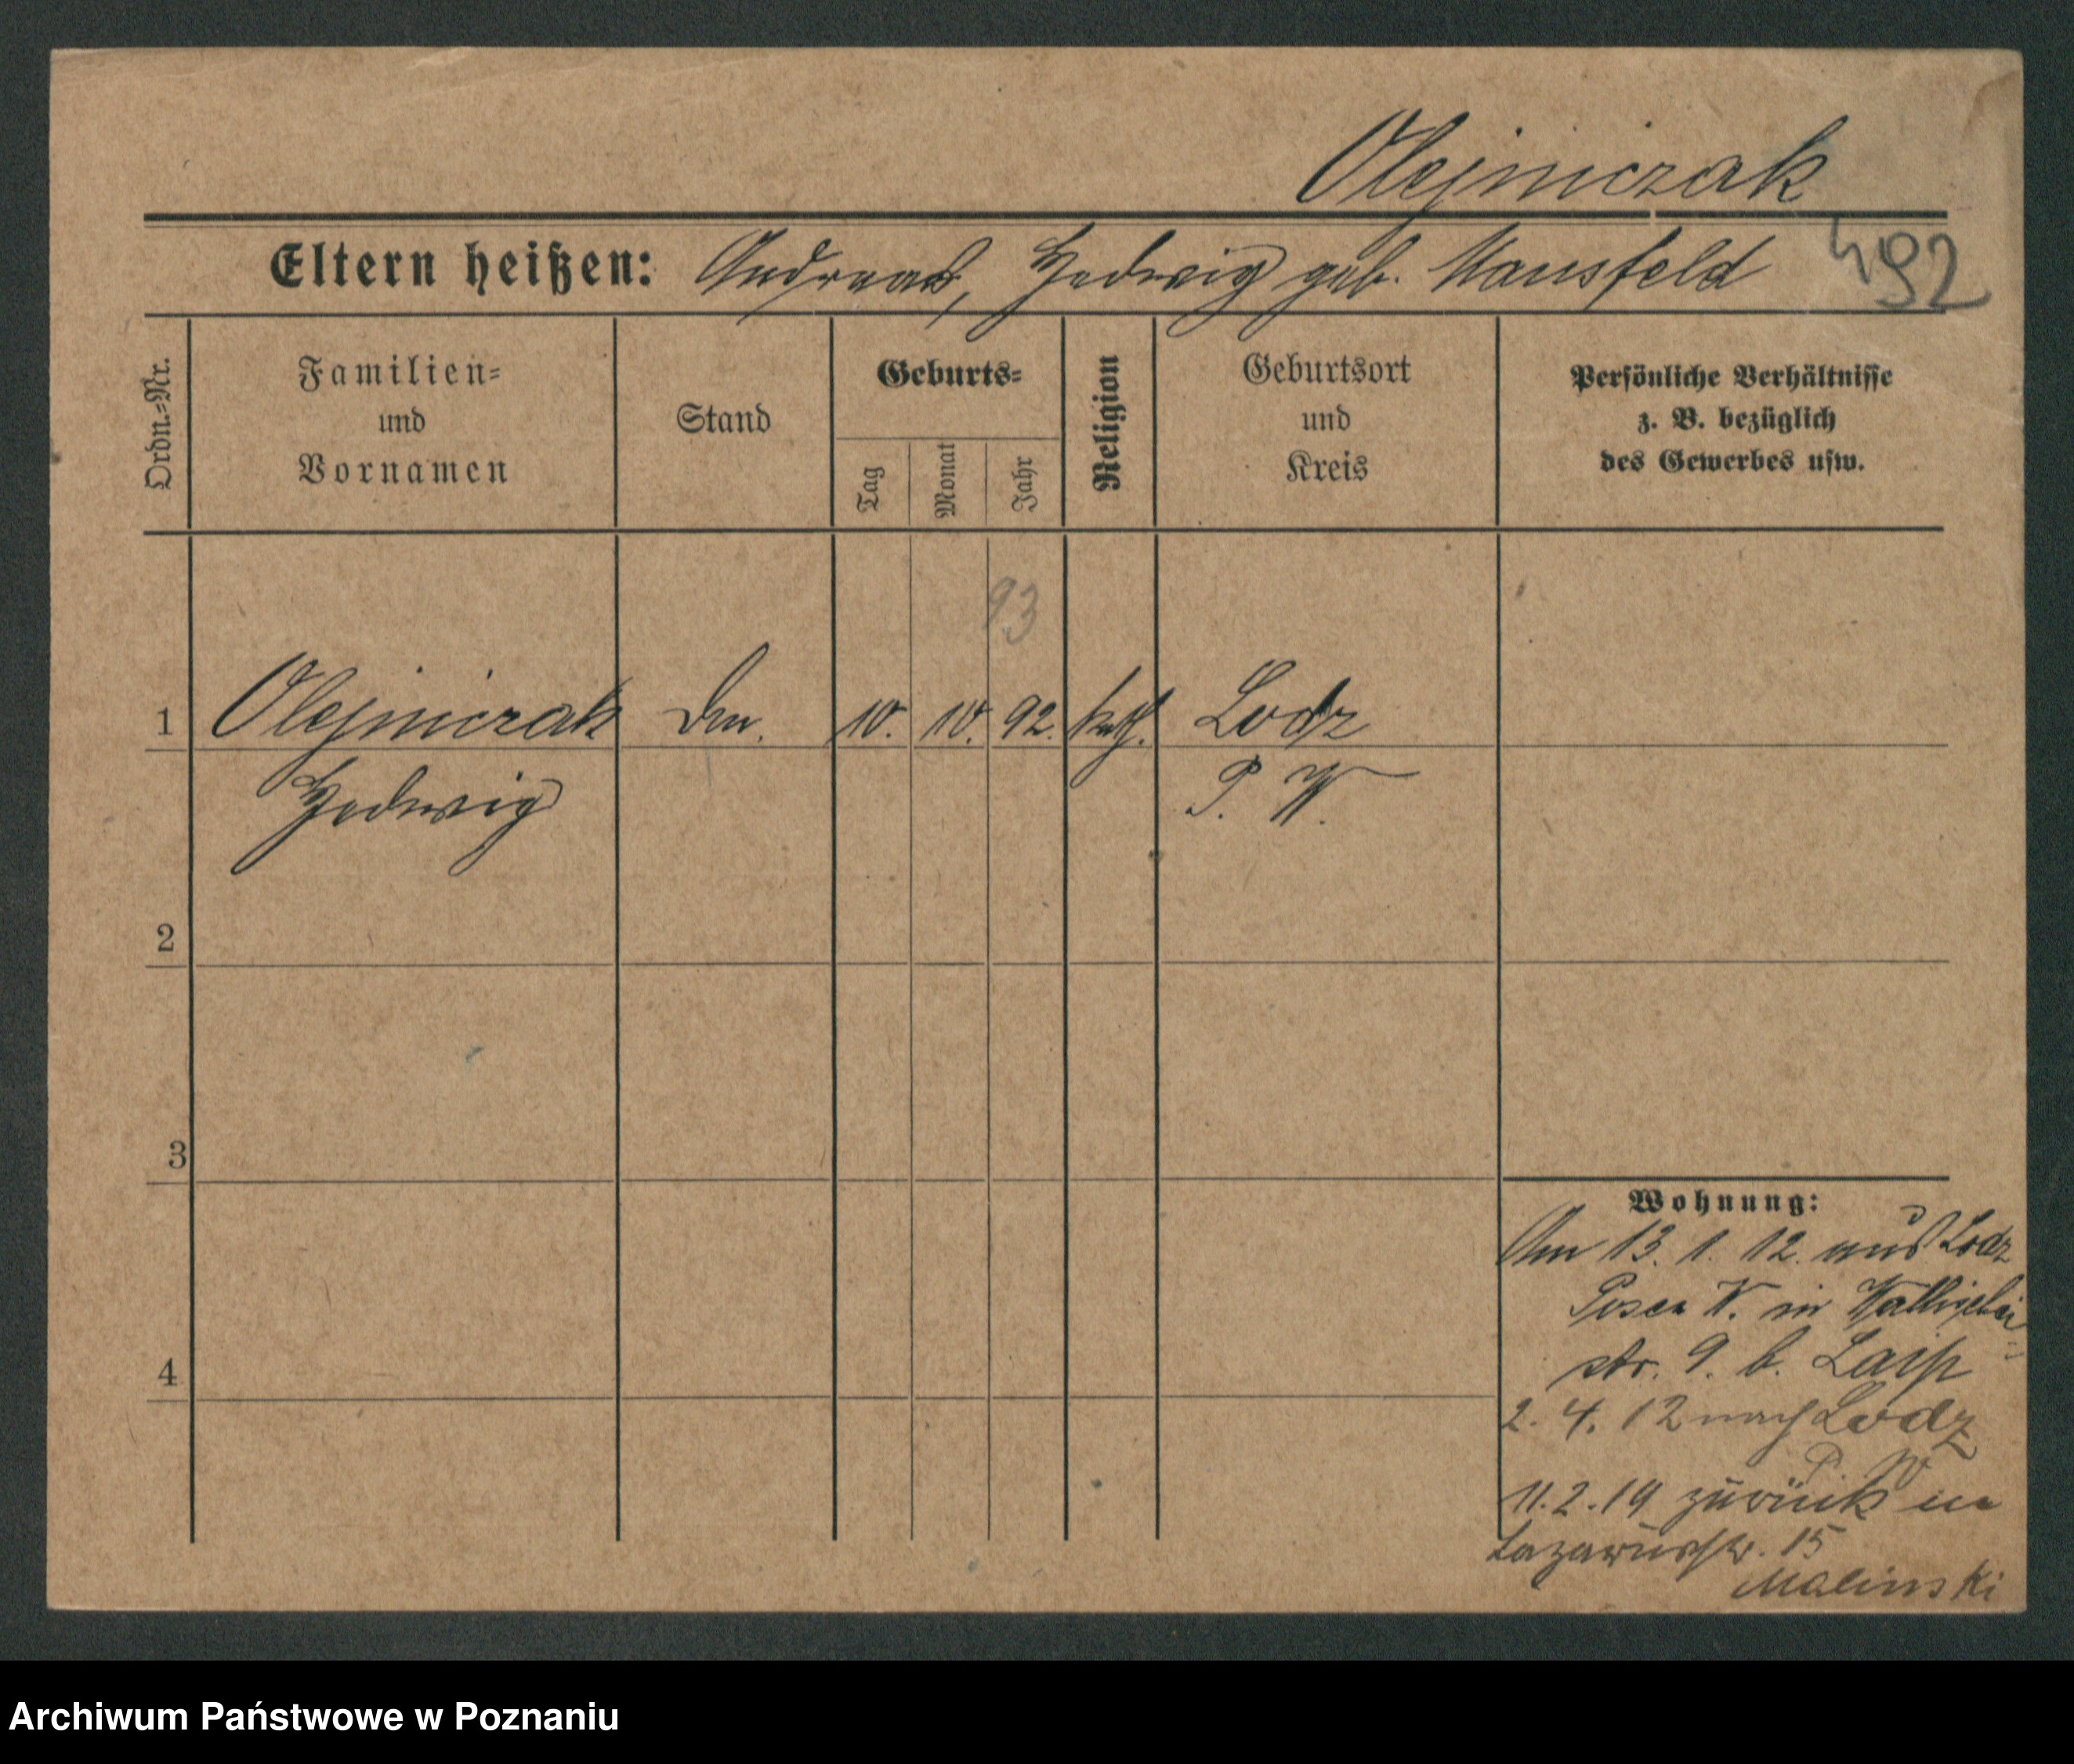 Olejniczak
Eltern heißen: Andreas, Hedwig geb. Mansfeld
492
Ordn.=Nr.
Familien=
und
Vornamen
Stand
Geburts=
Tag
Monat
Jahr
Religion
Geburtsort
und
Kreis
Persönliche Verhältnisse
z. B. bezüglich
des Gewerbes usw.
93
1 Olejniczak 10. 10. 92. kath. Lodz
Hedwig P. W.
2
3
4
Wohnung:
Am 13. 1. 12. aus Lodz
Posen W. in Wallischei
str. 9. b.
2. 4. 12 nach Lodz
P W
11. 2. 19 zurück in
Lazarusstr. 15
Malinski
Archiwum Państwowe w Poznaniu